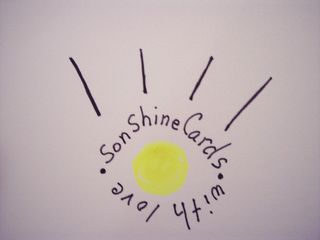 SonShine Cards
with love